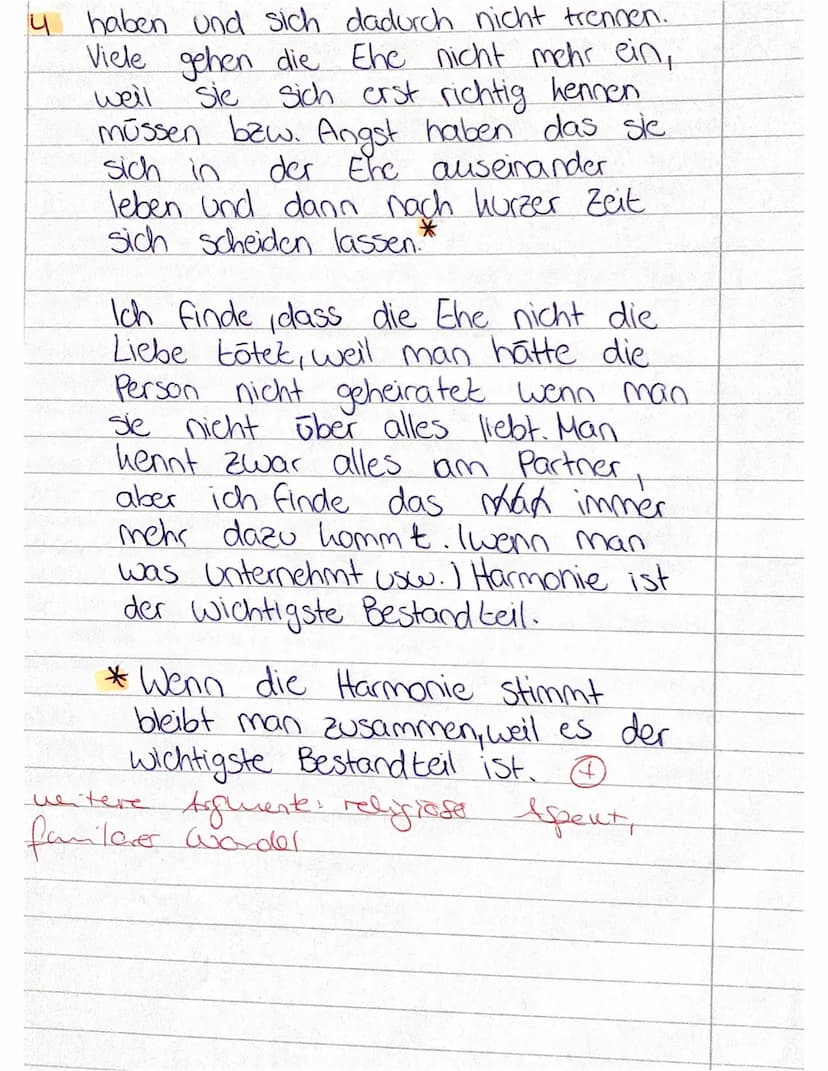 4 haben und sich dadurch nicht trennen.
Viele gehen die Ehe nicht mehr ein,
weil sie sich erst richtig kennen
müssen bzw. Angst haben das sie
sich in der Ehe auseinander
leben und dann nach kurzer Zeit
sich scheiden lassen.*
Ich finde, dass die Ehe nicht die
Liebe tötet, weil man hätte die
Person nicht geheiratet wenn man
sie nicht über alles liebt. Man
kennt zwar alles am Partner,
aber ich finde das immer
mehr dazu kommt. (wenn man
was unternehmt usw.) Harmonie ist
der wichtigste Bestandteil.
* Wenn die Harmonie stimmt
bleibt man zusammen, weil es der
wichtigste Bestandteil ist.
weitere Argumente: religiöse Aspekt,
familiärer Wandel